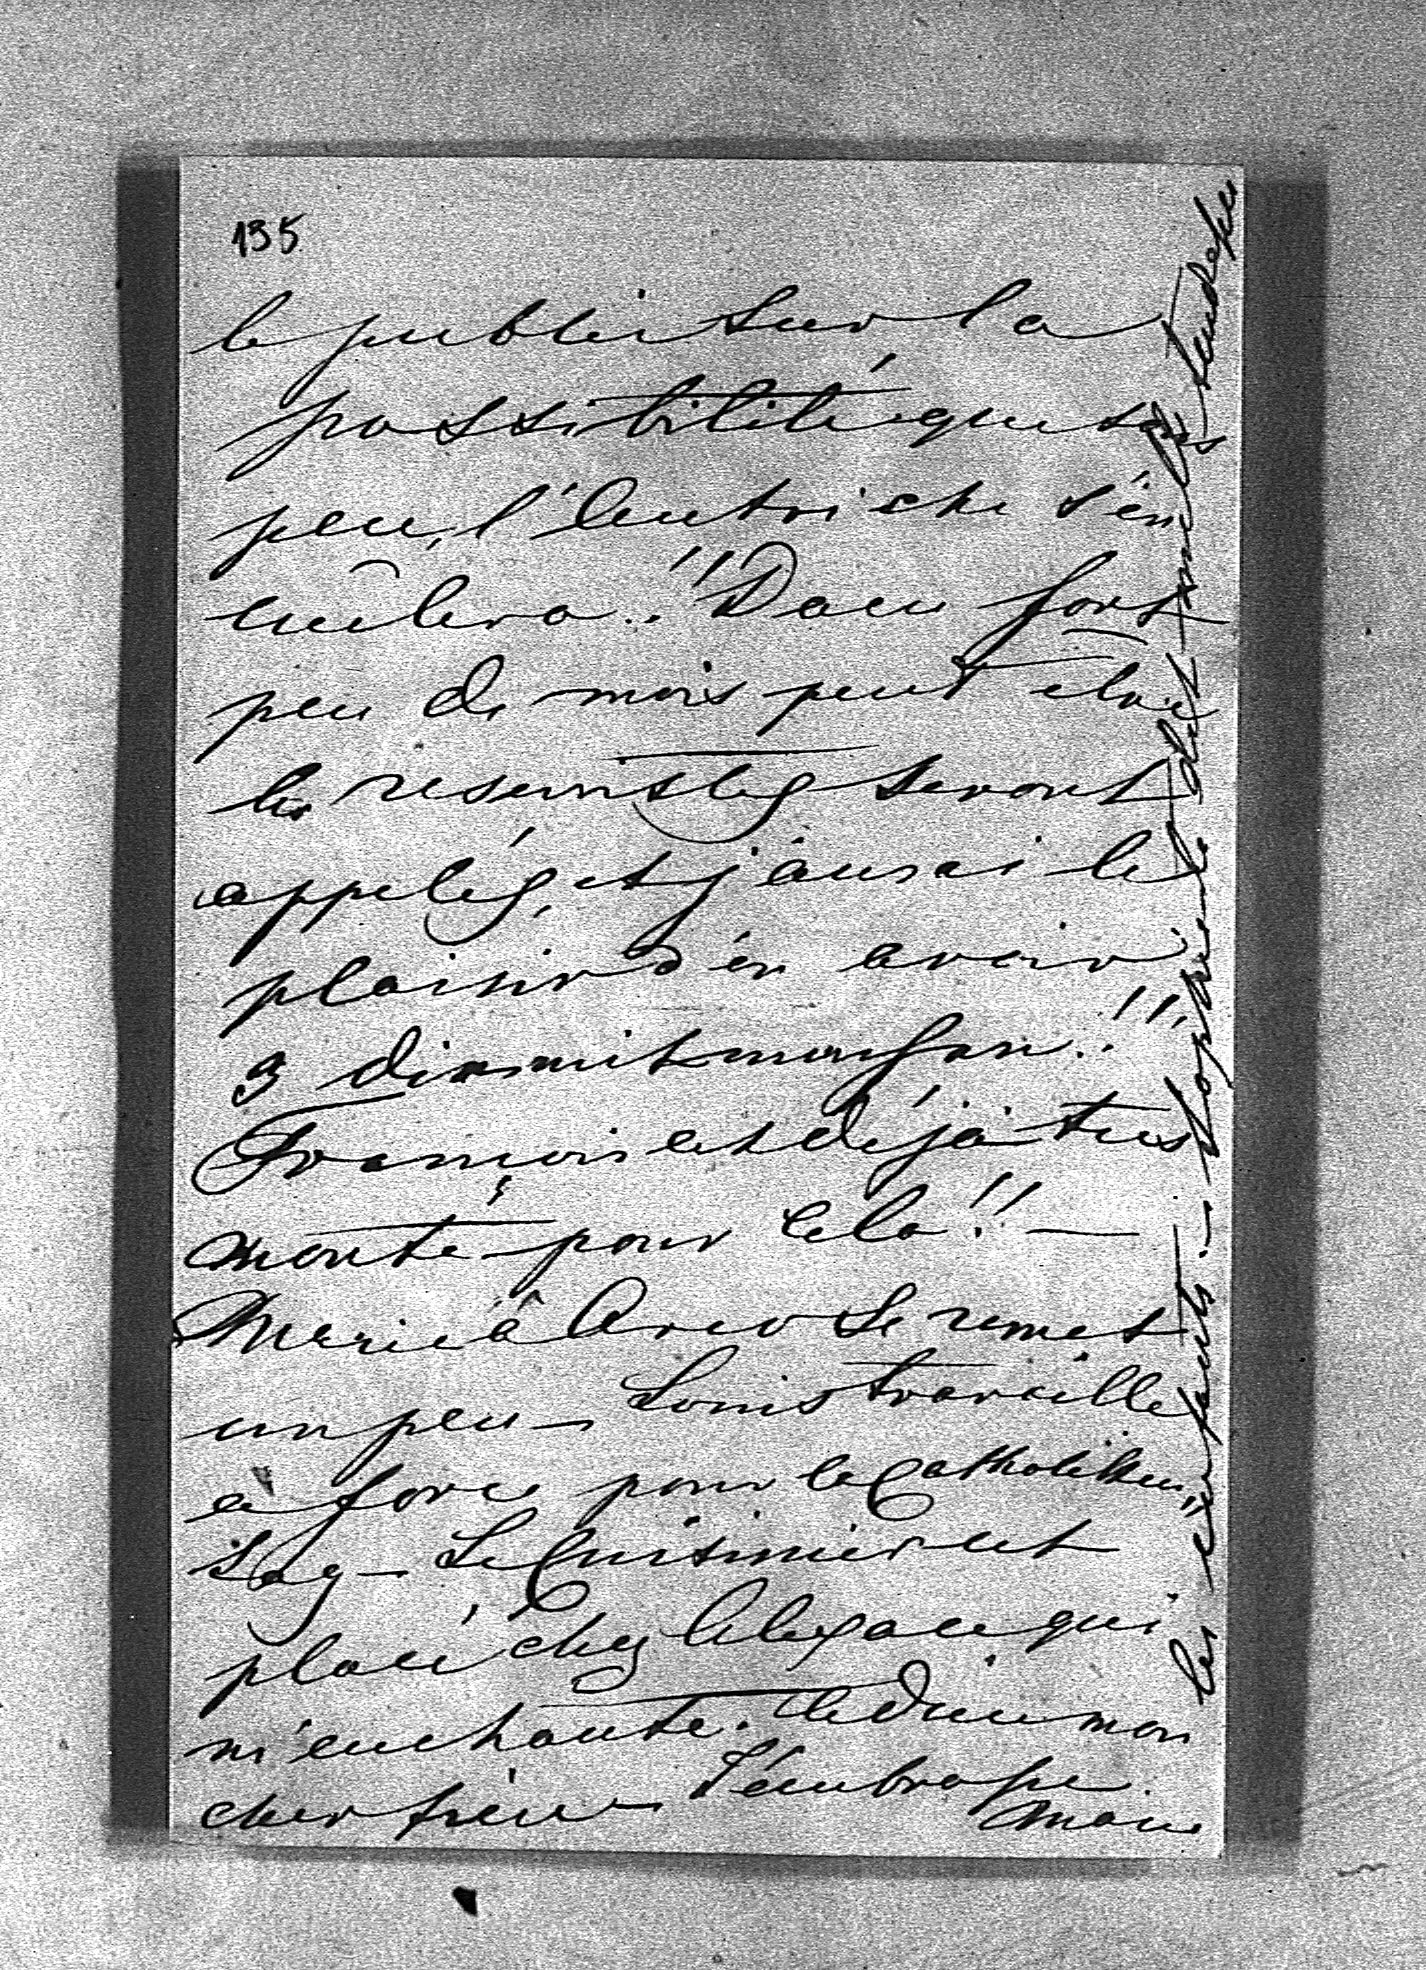 135
le public sur la
possibilité que sous
peu, l'Autriche s'en
mêlera.!! Dans fort
peu de mois peut être
les reservistes seront
appelés, et j'aurai le
plaisir d'en avoir
3
François est déja très
monté pour cela!! —
Marie à Arco se remet
un peu — Louis travaille
à force pour le Catholiken
tag — Le Cuisinier est
placé chez qui
m'enchante. adieu mon
cher frère — t'embrasse
Marie
les enfants. — Sophie le dit mille tendresses